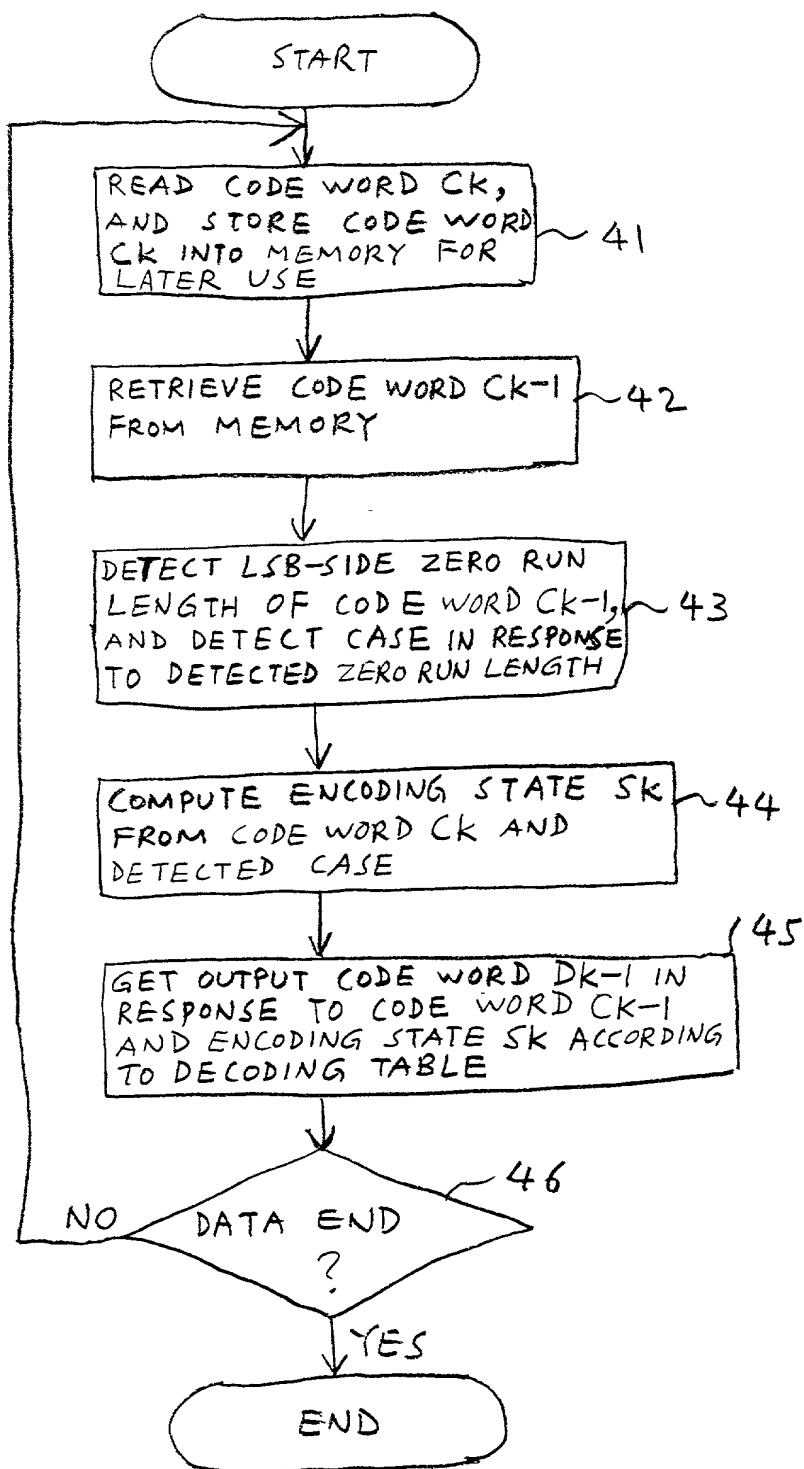 START
READ CODE WORD CK,
AND STORE CODE WORD
CK INTO MEMORY FOR
LATER USE
41
RETRIEVE CODE WORD CK-1
FROM MEMORY
42
DETECT LSB-SIDE ZERO RUN
LENGTH OF CODE WORD CK-1,
AND DETECT CASE IN RESPONSE
TO DETECTED ZERO RUN LENGTH
43
COMPUTE ENCODING STATE SK
FROM CODE WORD CK AND
DETECTED CASE
44
45
GET OUTPUT CODE WORD DK-1 IN
RESPONSE TO CODE WORD CK-1
AND ENCODING STATE SK ACCORDING
TO DECODING TABLE
46
NO
DATA END
?
YES
END